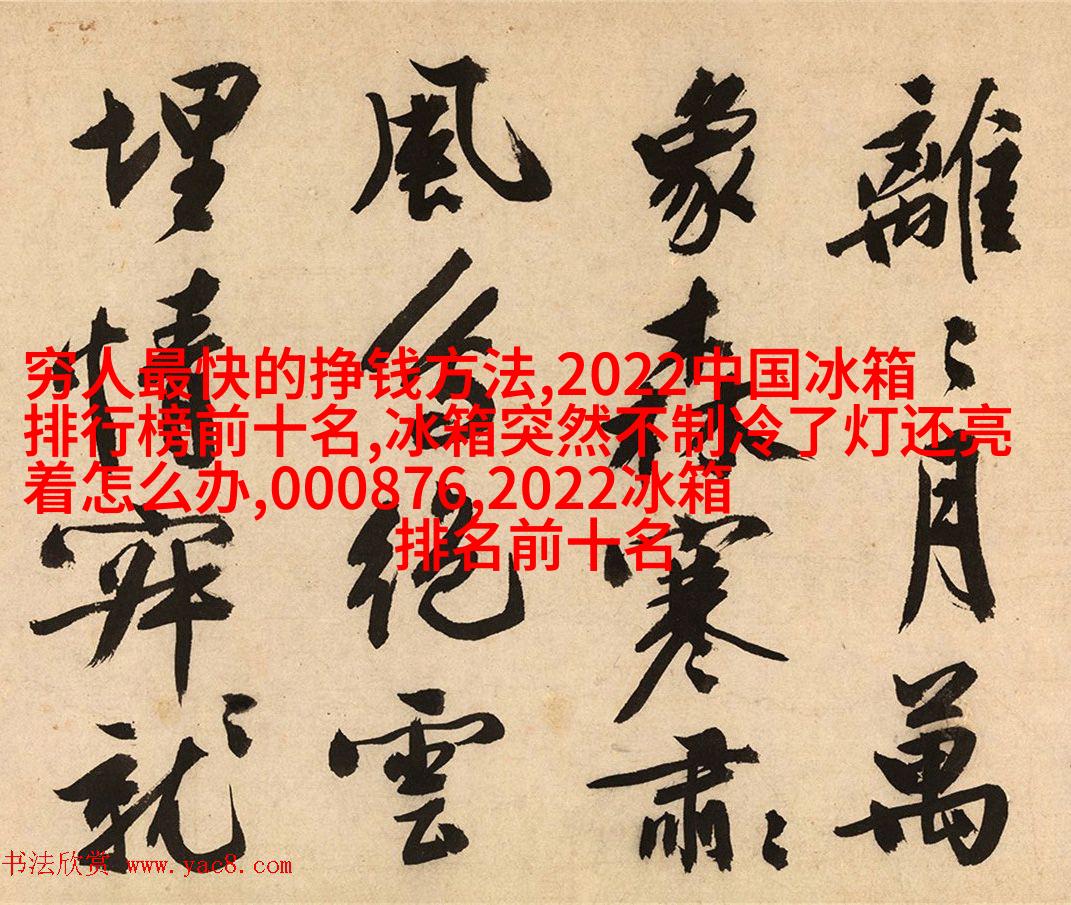 離〻月萬
象森寒肅〻
風絕雲
埋情就〻
穷人最快的挣钱方法,2022中国冰箱
排行榜前十名,冰箱突然不制冷了灯还亮
着怎么办,000876,2022冰箱
排名前十名
书法欣赏 www.yac8.com